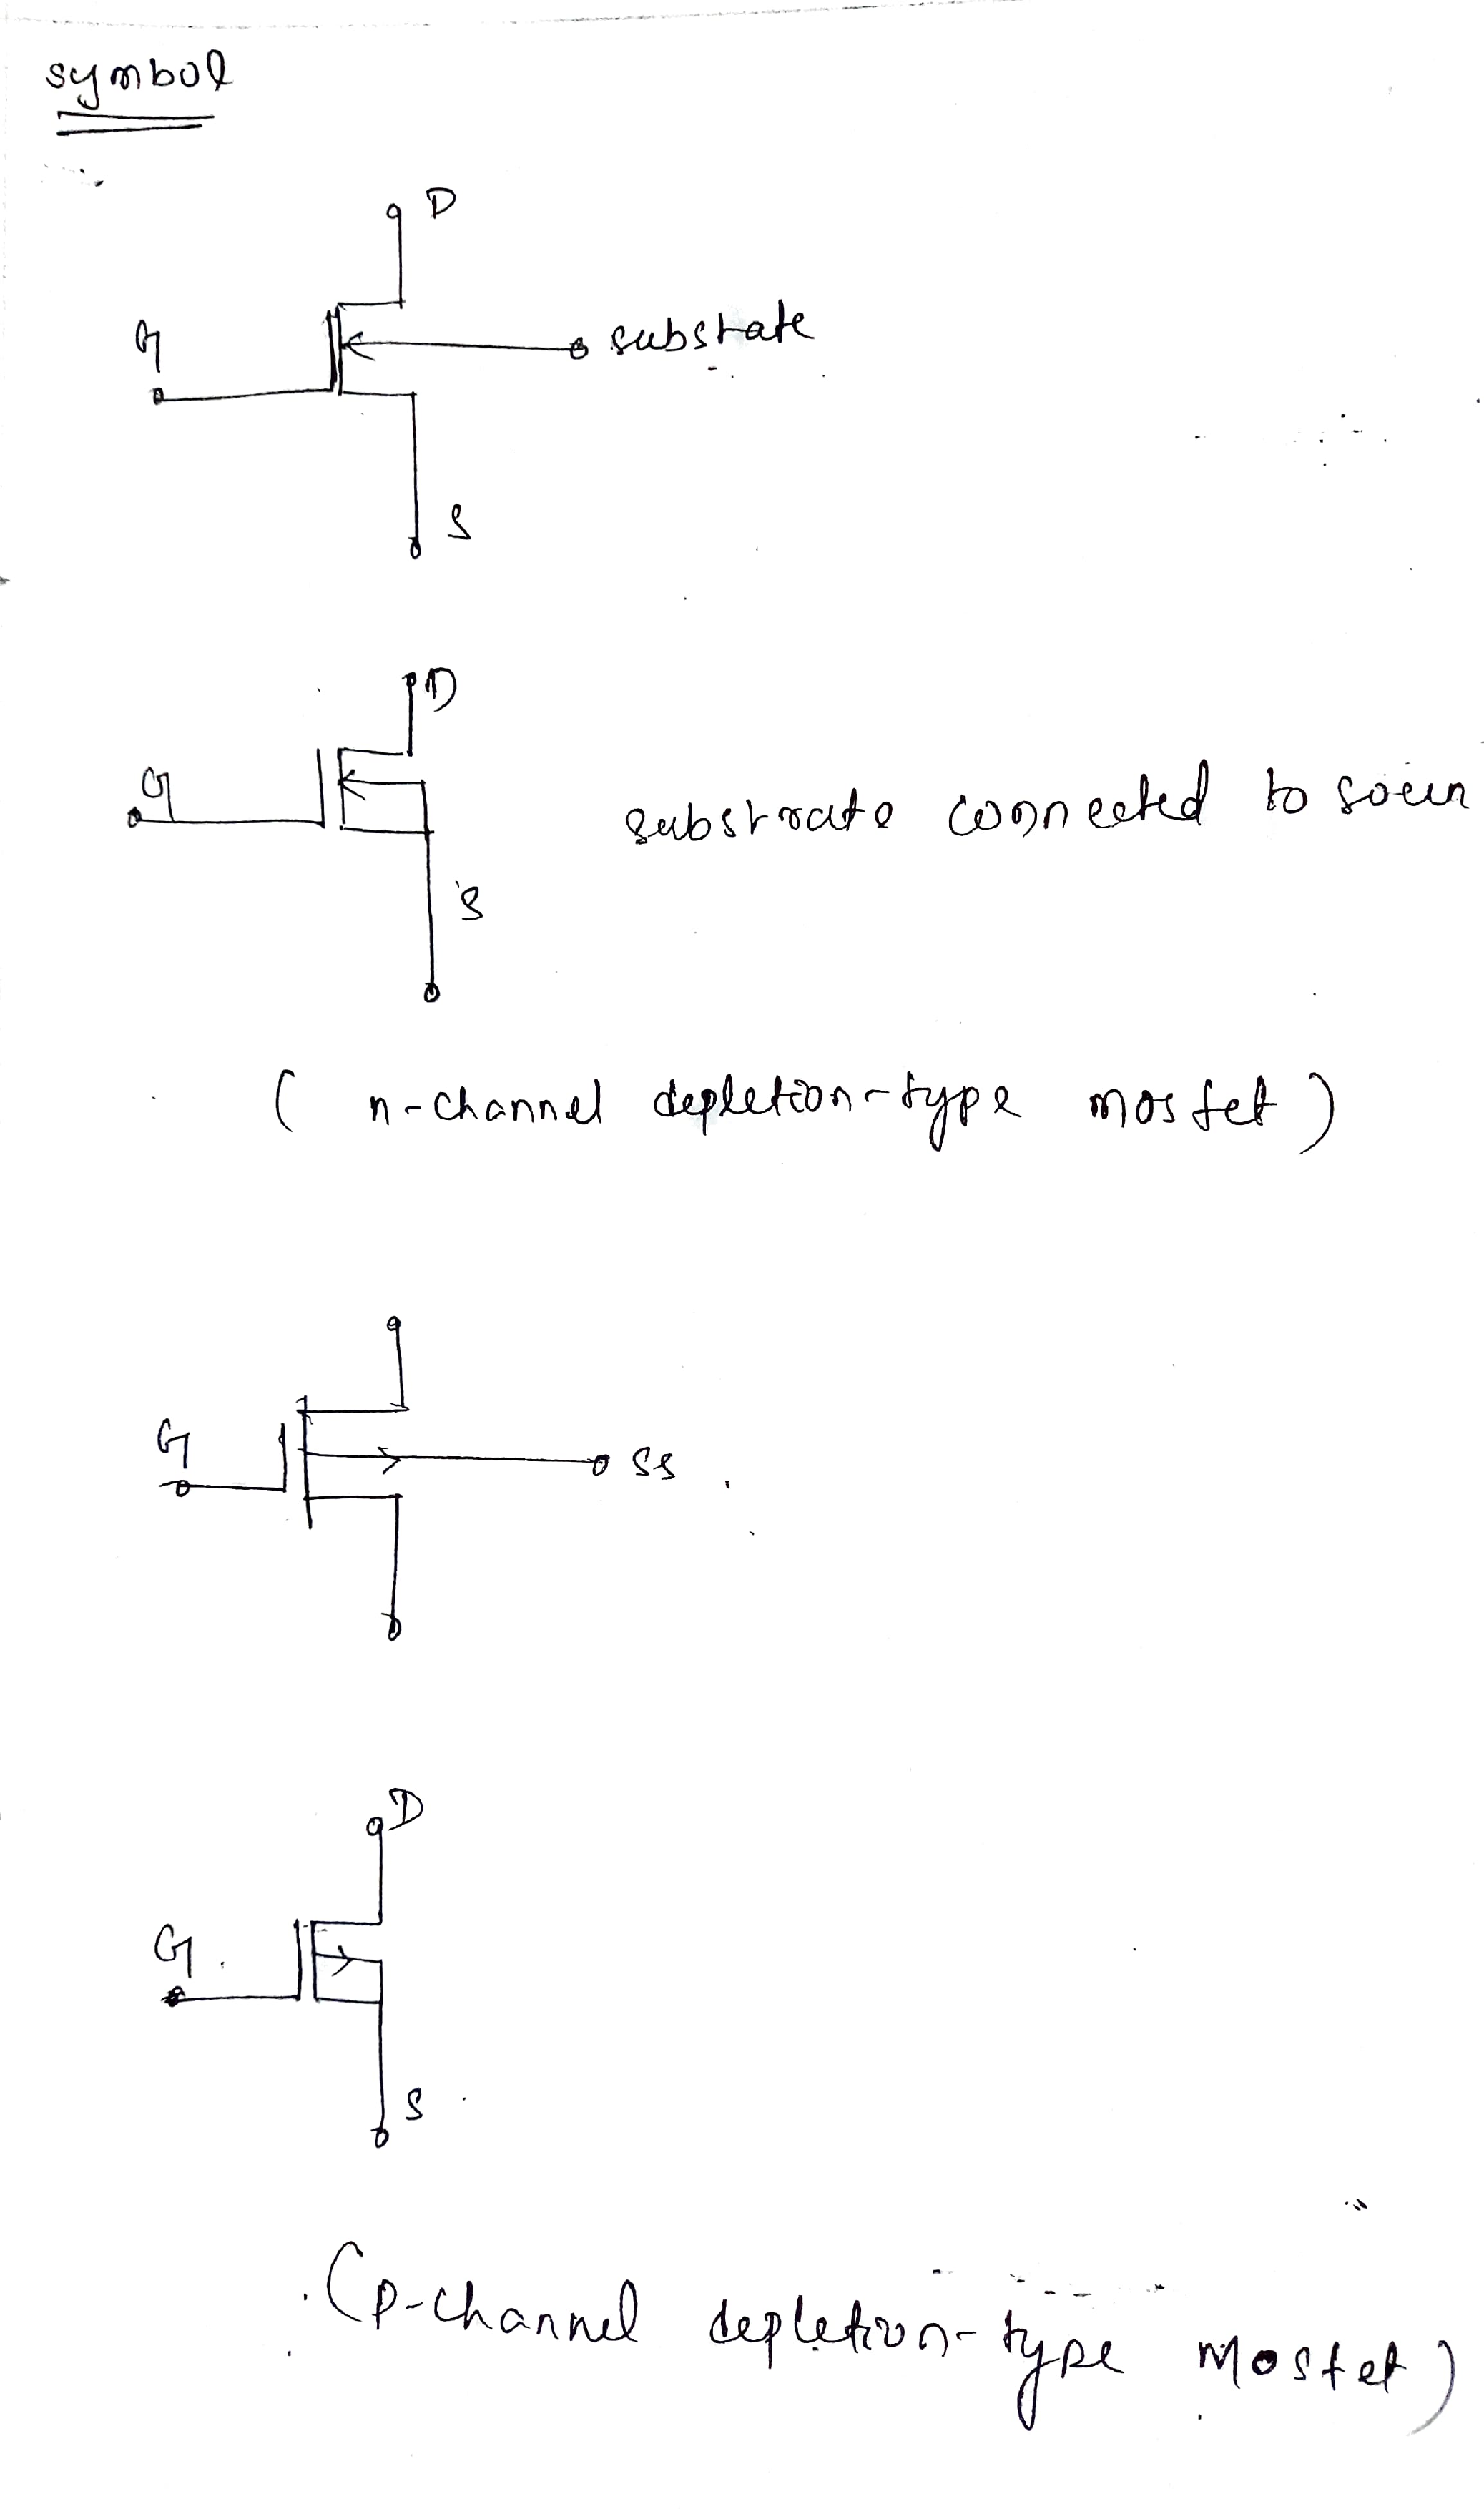 symbol
D
G
substrate
S
D
G
substrate connected to
S
(n-channel depletion-type mosfet)
G
SS
D
G
S
(p-channel depletion-type Mosfet)